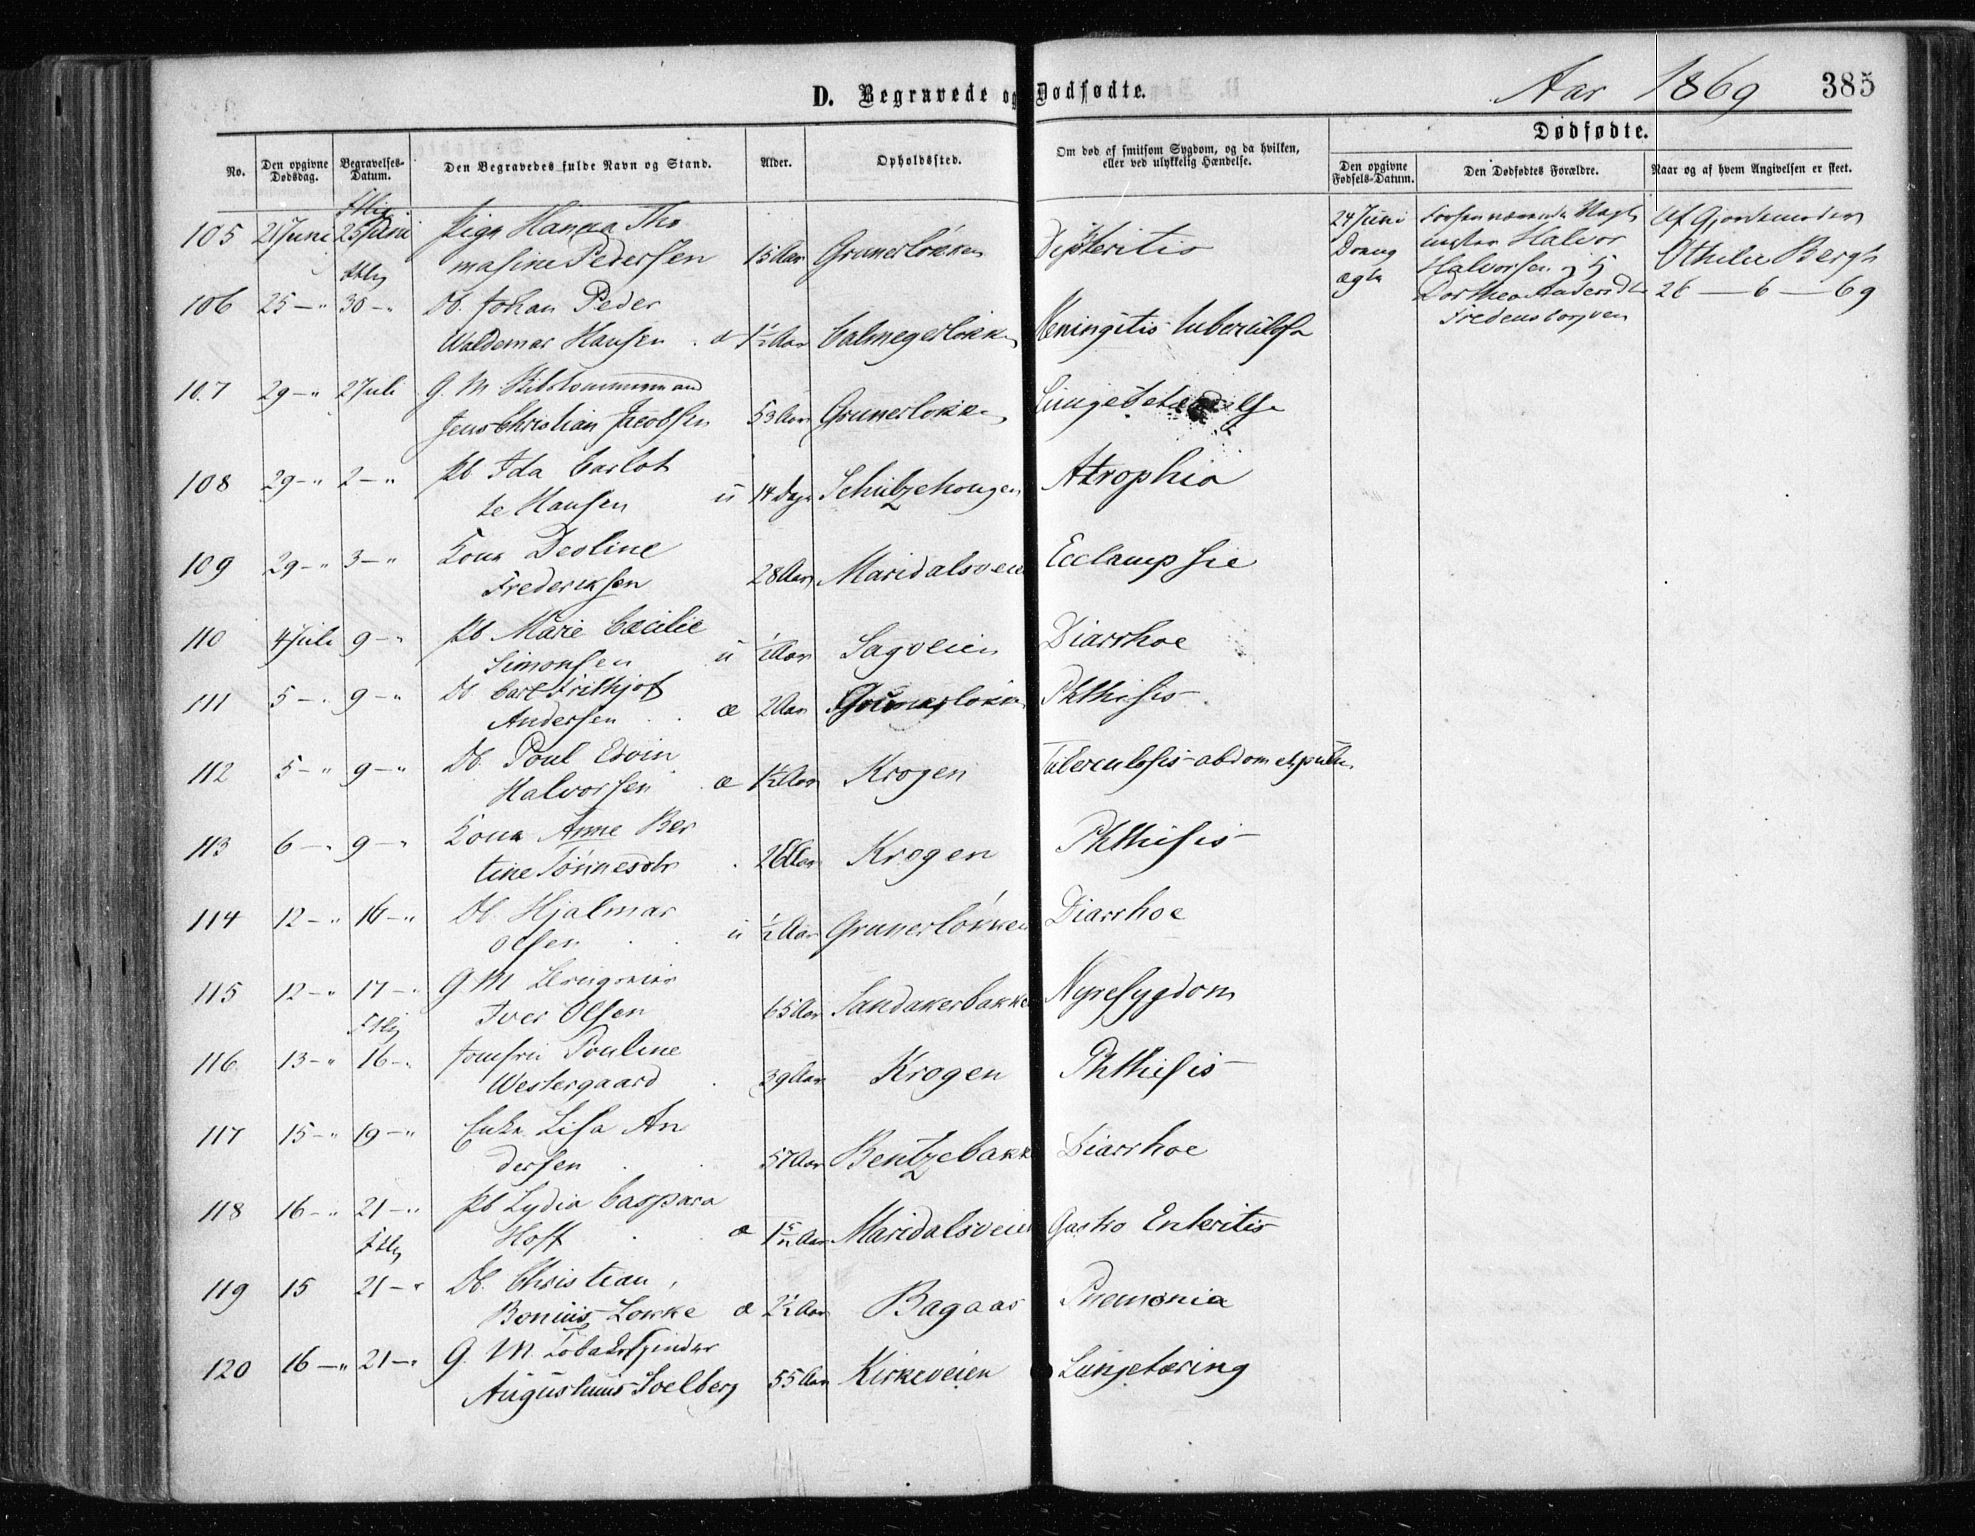 D. Begravede og Dødfødte.
Aar 1869
385
Dødfødte.
No.
Den opgivne Dødsdag.
Begravelses-Datum.
Den Begravedes fulde Navn og Stand.
Alder.
Opholdssted.
Om død af smitsom Sygdom, og da hvilken,
eller ved ulykkelig Hændelse.
Den opgivne Fødsels-Datum.
Den Dødfødtes Forældre.
Naar og af hvem Angivelsen er skeet.
105 21 Juni 25 Juni Pige Hanna Tho
masine Pedersen 15 Aar Grunerløkken Dipteritis
24 Juni
ægte
Halvor
Halvorsen
Af Gjordemoderen
Othilie Bergh
26 — 6 — 69
106 25 — " 30 — " Db. Johan Peder
Waldemar Hansen . æ 1½ Aar Calmeyerløkken Meningitis tuberculosa
107 29 — " 2 Juli G. M.
Jens Christian Jacobsen 53 Aar Grunerløkken
108 29 — " 2 — " Pb Ida Carlot
te Hansen u 14 Dage Schützehougen Atrophia
109 29 — " 3 — " Kone Deoline
Frederiksen 28 Aar Maridalsveien Ecclampsie
110 4 Juli 9 — " Pb. Marie Cæcilie
Simonsen u ½ Aar Sagveien Diarrhoe
111 5 — " 9 — " Db Carl Frithjof
Andersen . . æ 2 Aar Phthisis
112 5 — " 9 — " Db. Poul Edvin
Halvorsen . æ 1½ Aar Krogen Tuberculosis abdom et pulm.
113 6 — " 9 — " Kone Anne Ber
tine Tønnesdtr . 26 Aar Krogen Phthisis
114 12 — " 16 — " Db. Hjalmar
Olsen . . u ½ Aar Grunerløkken Diarrhoe
115 12 — " 17 — " G M
Iver Olsen 65 Aar Sandakerbakken Nyresygdom
116 13 — " 16 — " Jomfru Pouline
Westergaard . 39 Aar Krogen Phthisis
117 15 — " 19 — " Enke Lisa An
dersen . . 57 Aar Bentzebakk Diarrhoe
118 16 — " 21 — " Pb Lydia Caspara
Hoff . . æ Maridalsveien Gastro Enteritis
119 15 21 — " Db. Christian
Løkke æ 2½ Aar Bagaas Pnemonia
120 16 — " 21 — " G. M. Tobaksspinder
Augustinus Solberg 55 Aar Kirkeveien Lungetæring